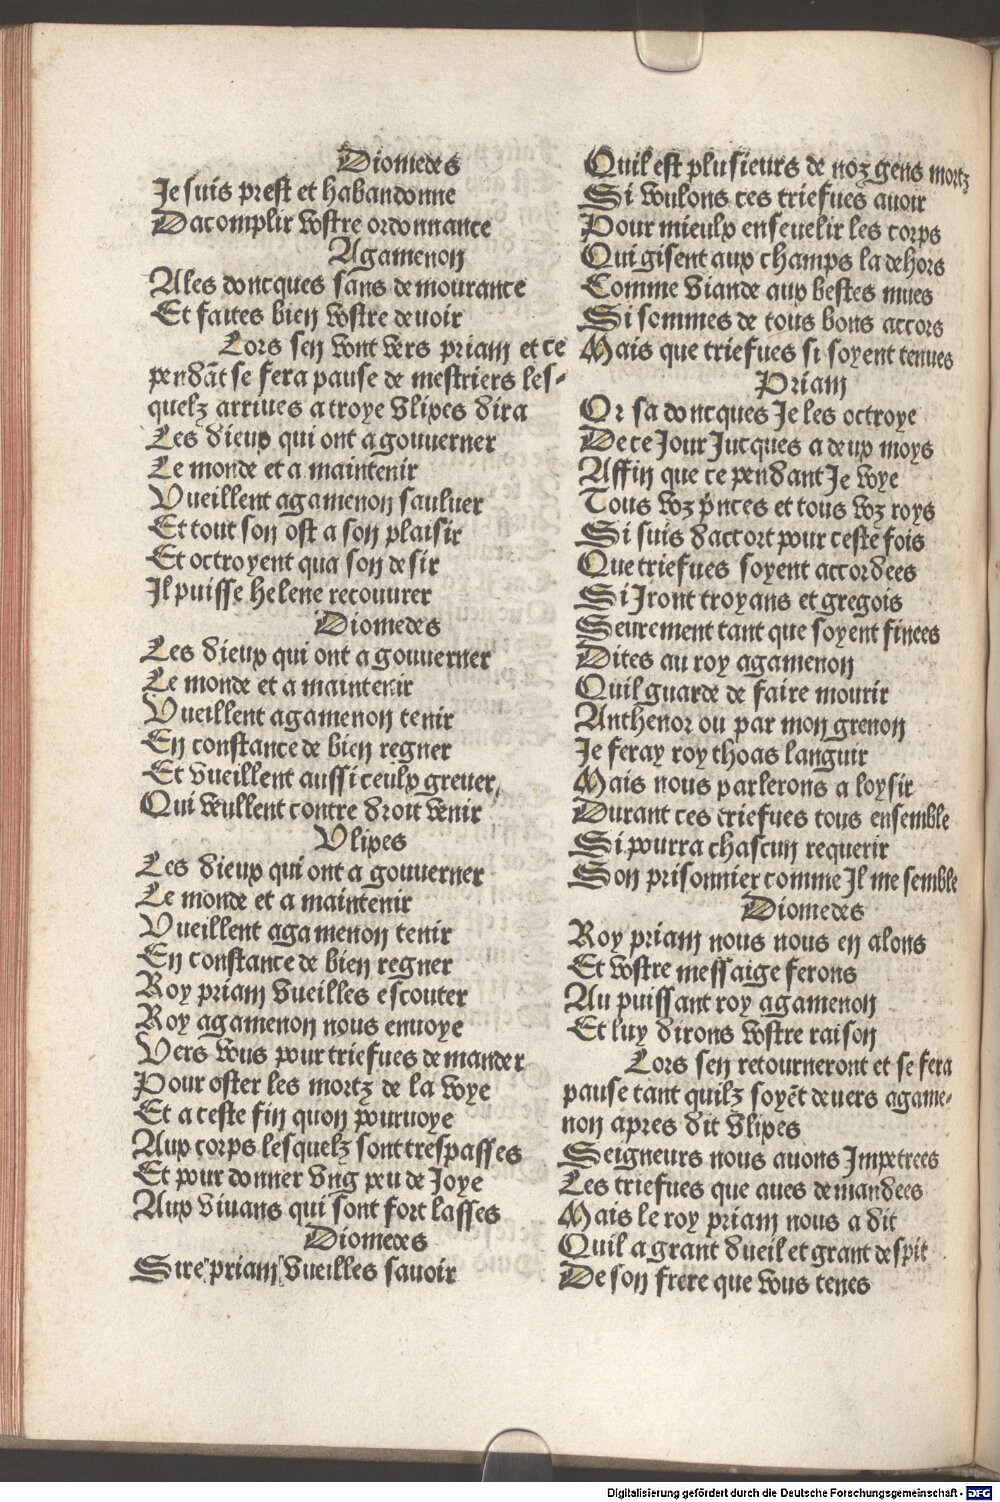 Diomedes
Je suis prest et habandonne
Dacomplir vostre ordonnance
Agamenon
Ales doncques sans demourance
Et faites bien vostre devoir
Lors sen vont vers priam et ce
pendãt se fera pause de mestriers les-
quelz arrives a troye Ulixes dira
Les dieux qui ont a gouuerner
Le monde et a maintenir
Vueillent agamenon sauluer
Et tout son ost a son plaisir
Et octroyent qua son desir
Il puisse helene recouurer
Diomedes
Les dieux qui ont a gouuerner
Le monde et a maintenir
Vueillent agamenon tenir
En constance de bien regner
Et vueillent aussi ceulx greuer,
Qui veullent contre droit venir
Vlixes
Les dieux qui ont a gouuerner
Le monde et a maintenir
Vueillent agamenon tenir
En constance de bien regner
Roy priam vueilles escouter
Roy agamenon nous enuoye
Vers vous pour triefues demander
Pour oster les mortz de la voye
Et a ceste fin quon pouruoye
Aux corps lesquelz sont trespasses
Et pour donner vng peu de Joye
Aux viuans qui sont fort lasses
Diomedes
Sire priam vueilles sauoir
Quil est plusieurs de noz gens mortz
Si voulons ces triefues auoir
Pour mieulx enseuelir les corps
Qui gisent aux champs la dehors
Comme viande aux bestes mues
Si sommes de tous bons accors
Mais que triefues si soyent tenues
Priam
Or sa doncques Je les octroye
De ce Jour Jucques a deux moys
Affin que ce pendant Je voye
Tous voz p̃nces et tous voz roys
Si suis daccort pour ceste fois
Que triefues soyent accordees
Si Jront troyans et gregois
Seurement tant que soyent finees
Dites au roy agamenon
Quil guarde de faire mourir
Anthenor ou par mon grenon
Je feray roy thoas languir
Mais nous parlerons a loysir
Durant ces triefues tous ensemble
Si pourra chascun requerir
Son prisonnier comme Il me semble
Diomedes
Roy priam nous nous en alons
Et vostre messaige ferons
Au puissant roy agamenon
Et luy dirons vostre raison
Lors sen retourneront et se fera
pause tant quilz soyẽt deuers agame-
non apres dit vlixes
Seigneurs nous auons Impetrees
Les triefues que aues demandees
Mais le roy priam nous a dit
Quil a grant dueil et grant despit
De son frere que vous tenes
Digitalisierung gefördert durch die Deutsche Forschungsgemeinschaft - DFG